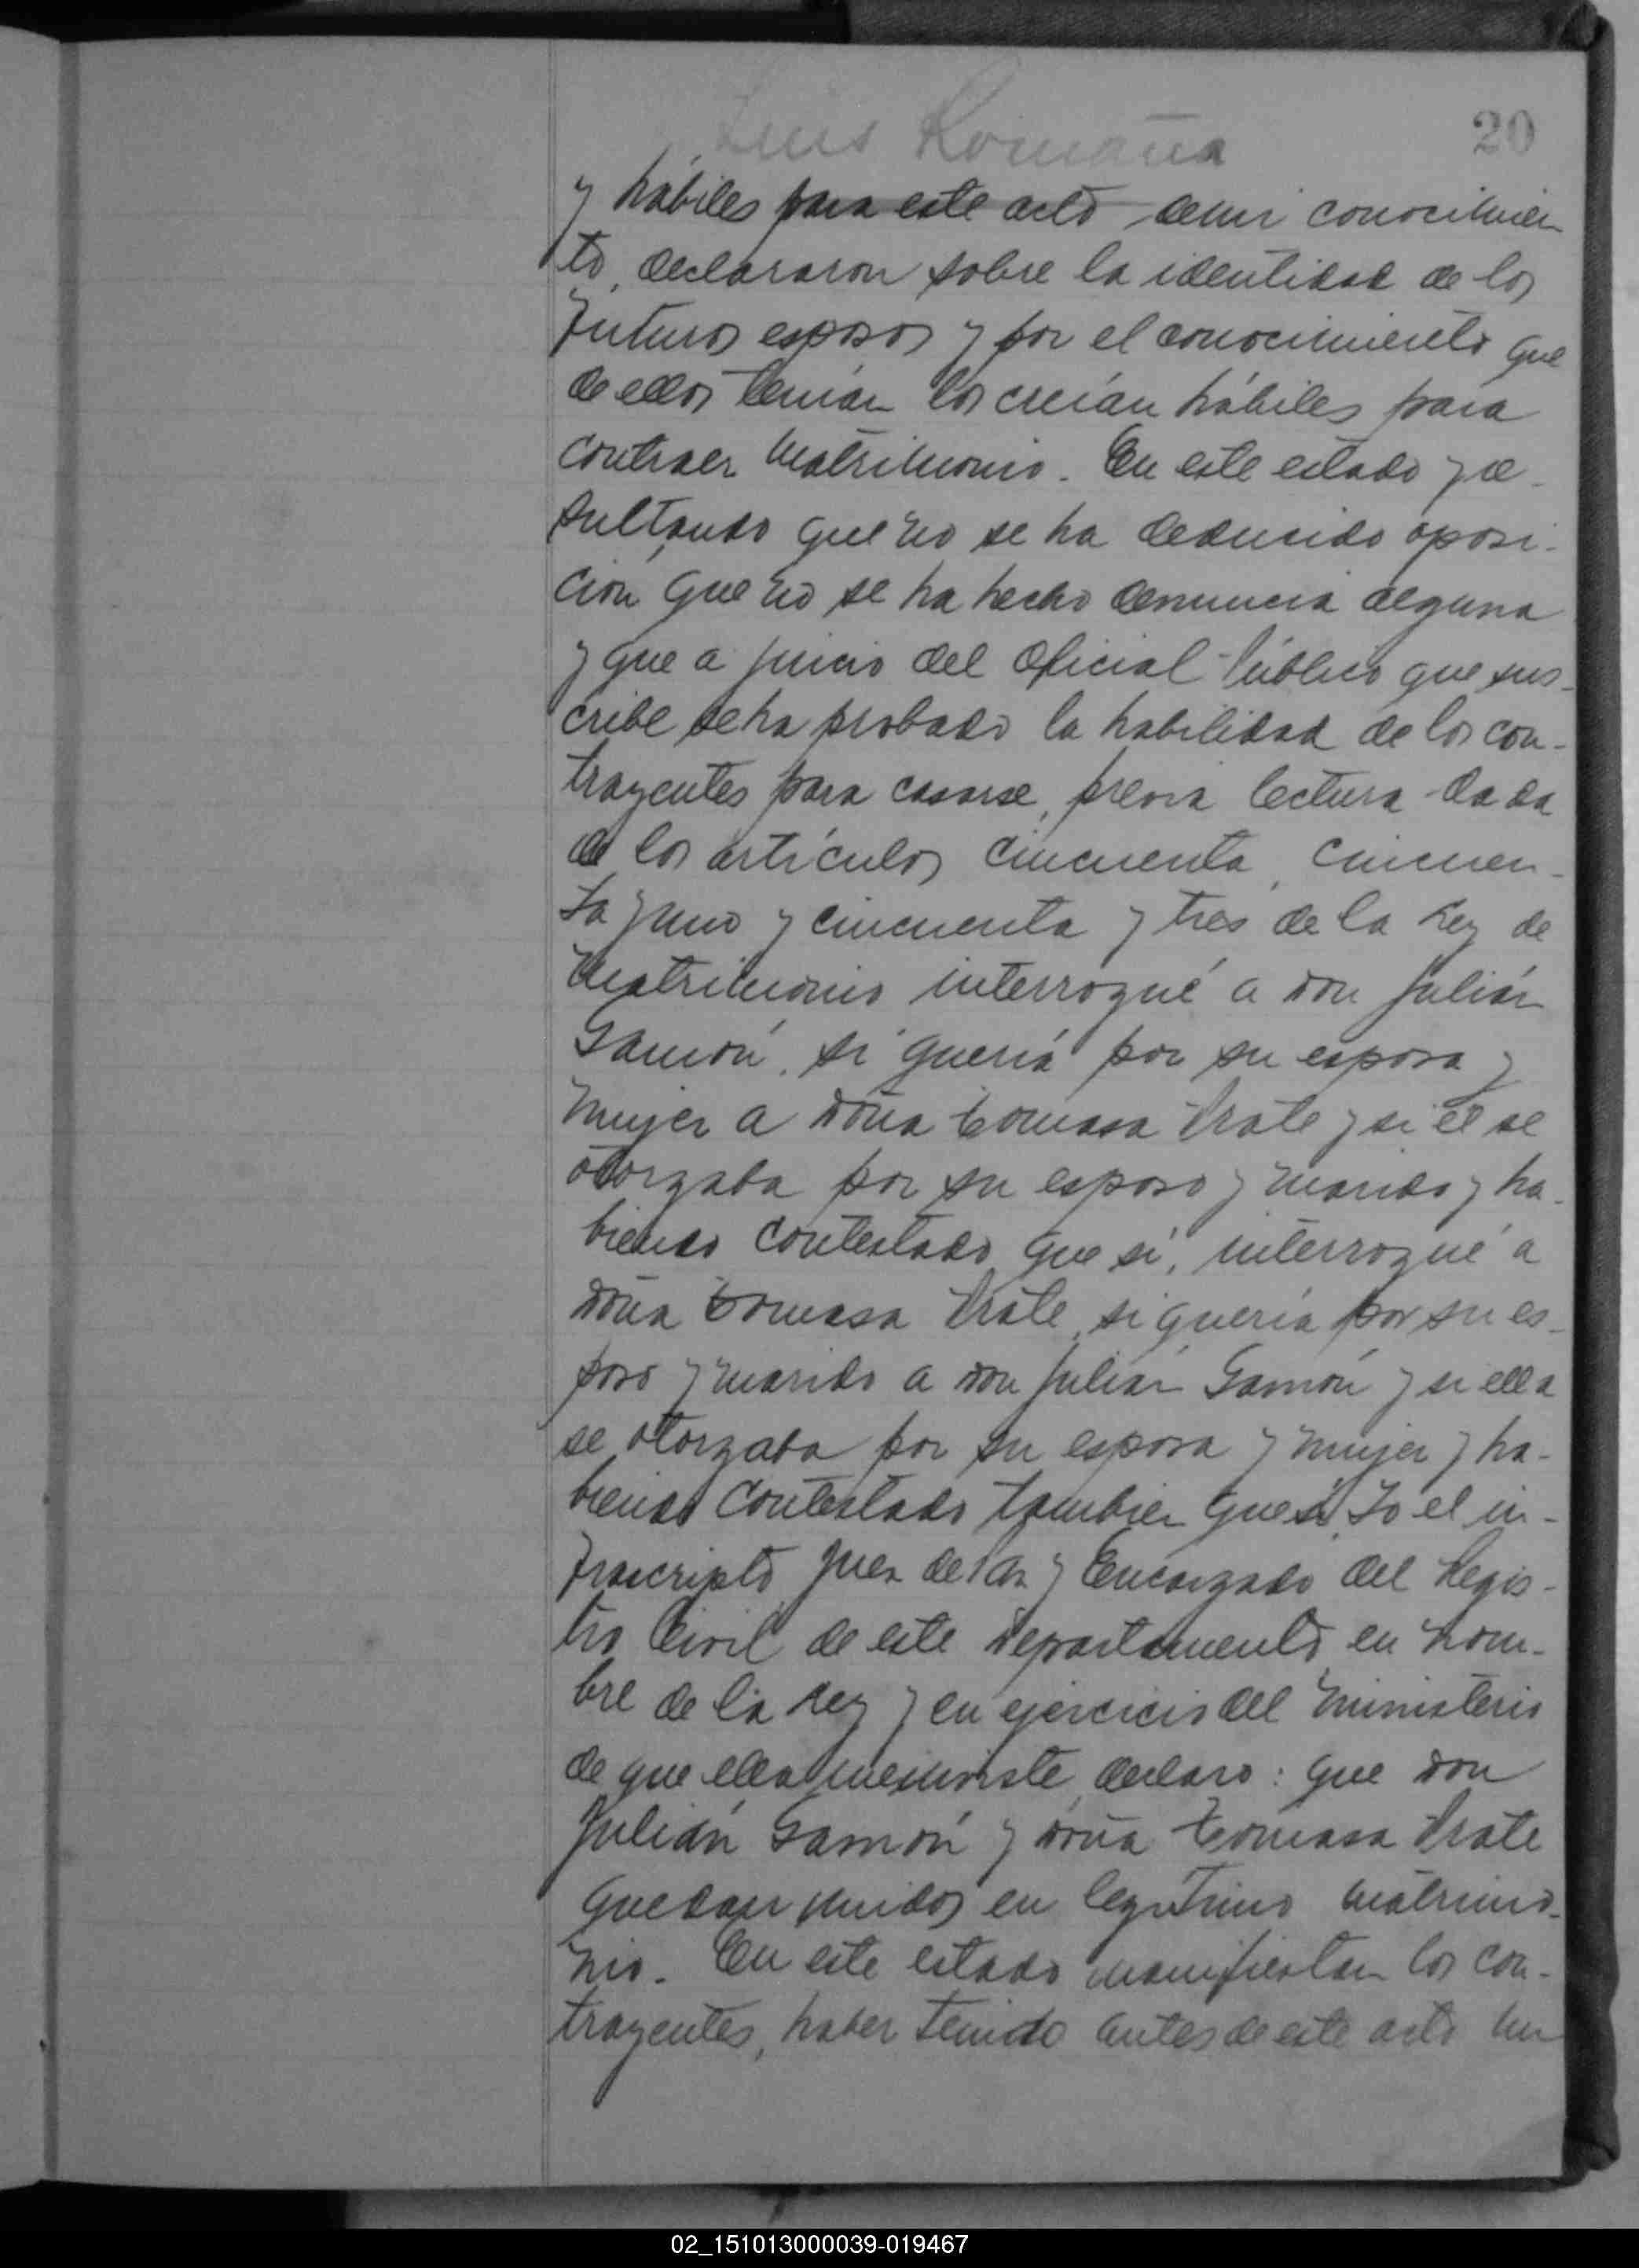 Luis Romaña
20
y hábiles para este acto de mi conocimien
to, declararon sobre la identidad de los
futuros esposos y por el conocimiento que
de ellos tenían los creían hábiles para
contraer matrimonio. En este estado y re-
sultando que no se ha deducido oposi-
ción que no se ha hecho denuncia alguna
y que a juicio del Oficial Público que sus-
cribe se ha probado la habilidad de los con-
trayentes para casarse, previa lectura dada
de los artículos cincuenta, cincuen-
ta y uno y cincuenta y tres de la Ley de
Matrimonio interrogué a don Julián
Gamón, si quería por su esposa y
mujer a doña Tomasa Prate y si él se
otorgaba por su esposo y marido y ha-
biendo contestado que sí, interrogué a
doña Tomasa Prate, si quería por su es-
poso y marido a don Julián Gamón y si ella
se otorgaba por su esposa y mujer y ha-
biendo contestado tambien que sí, Yo el in-
frascripto Juez de Paz y Encargado del Regis-
tro Civil de este Departamento en nom-
bre de la Ley y en ejercicio del ministerio
de que ella me inviste, declaro: que don
Julián Gamón y doña Tomasa Prate
quedan unidos en legítimo matrimo-
nio. En este estado manifiestan los con-
trayentes, haber tenido antes de este acto un
02_151013000039-019467